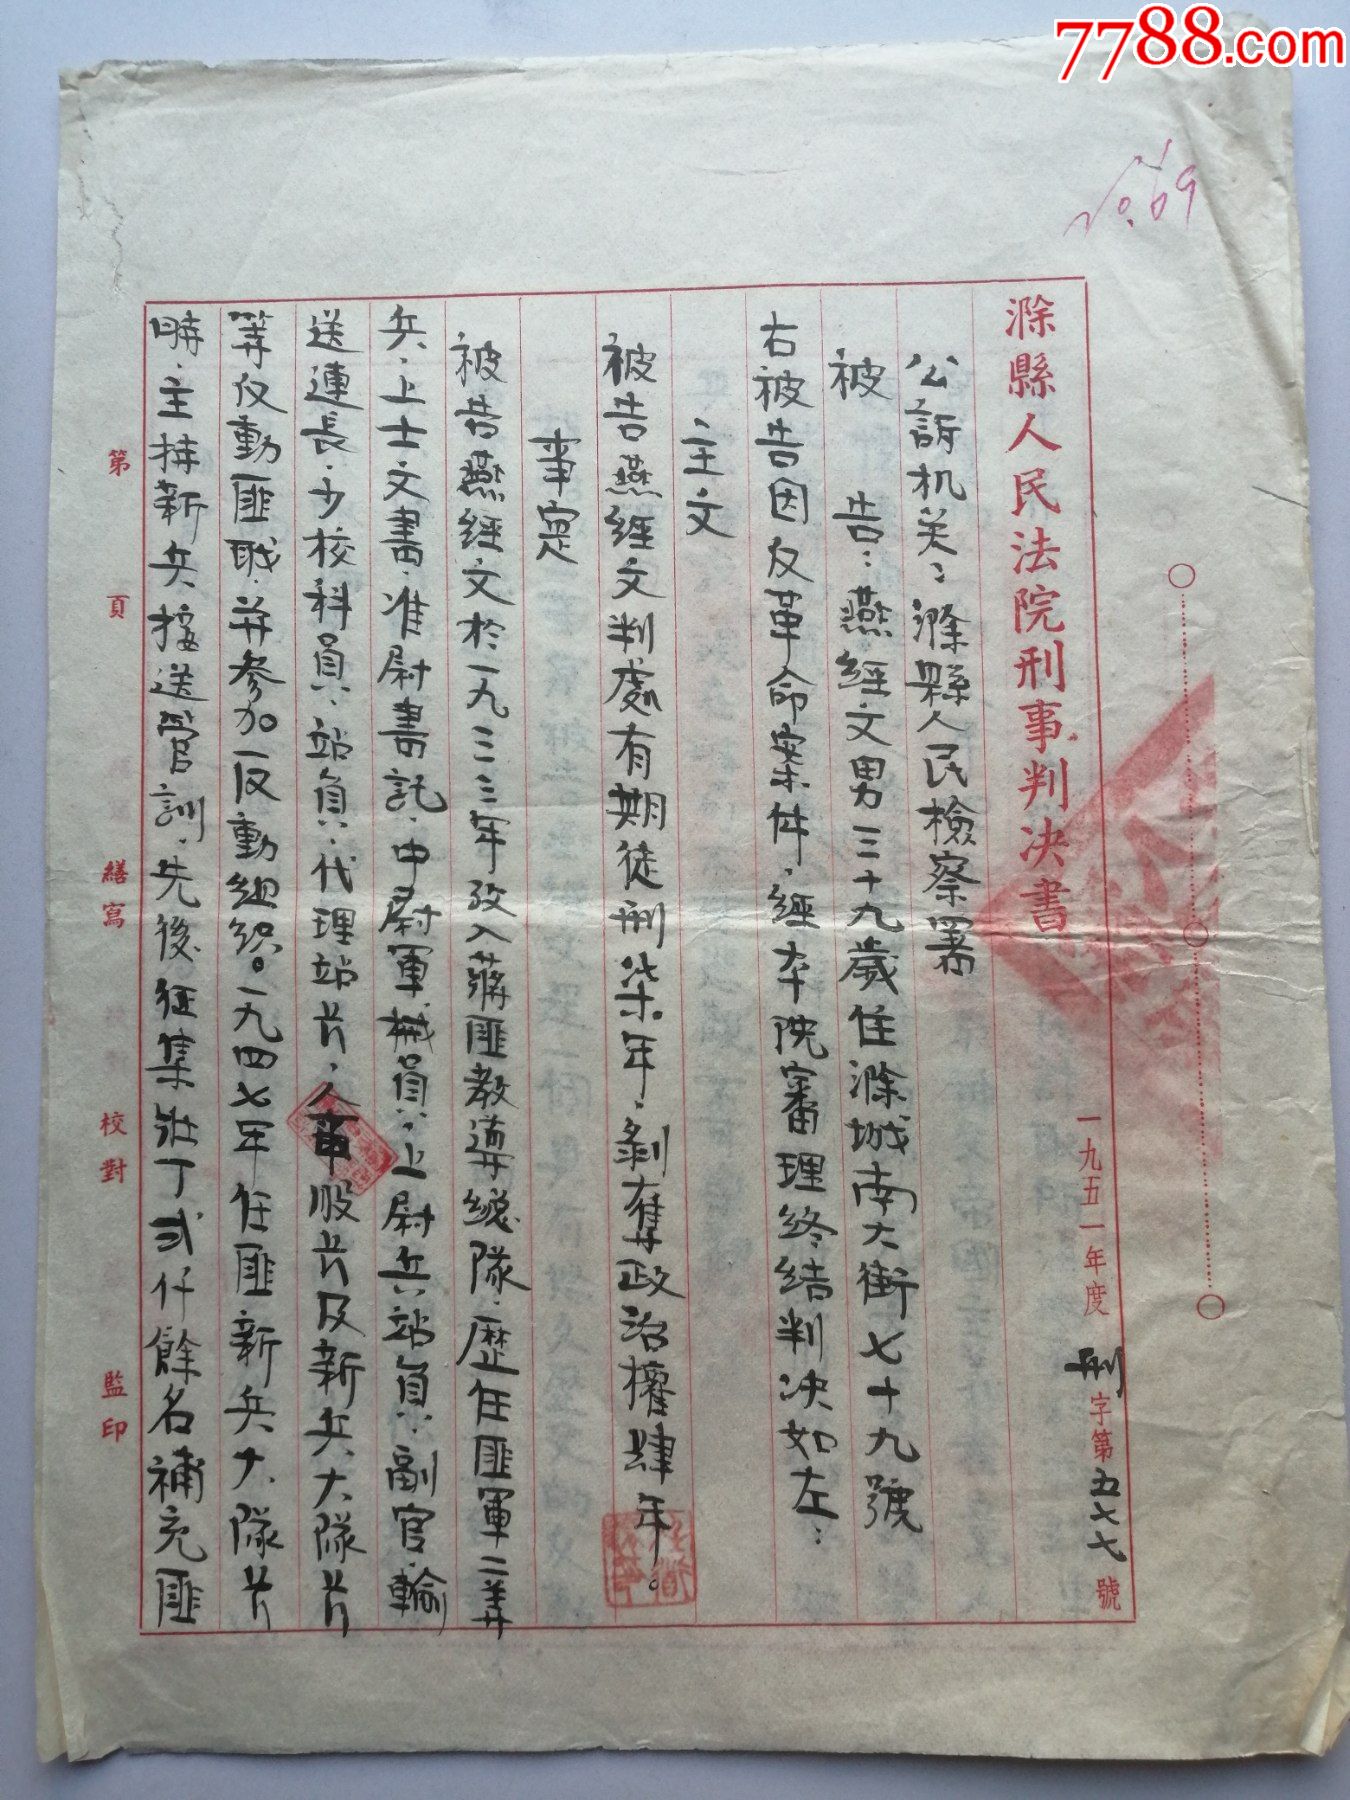 7788.com
No.69
滁縣人民法院刑事判决書
一九五一年度刑字第五七七號
公訴机关：滁縣人民檢察署
被告：燕經文男三十九歲住滁城南大街七十九號
右被告因反革命案件．經本院審理終結判决如左：
主文
被告燕經文判處有期徒刑柒年．剝奪政治權肆年。
事寔
被告燕經文於一九三三年攷入蔣匪教導總隊．歷任匪軍二等
兵．上士文書．准尉書記．中尉軍械員．上尉兵站員．副官．輸
送連長．少校科員．站員．代理站长．人事股长及新兵大隊长
等仅動匪职．并參加反動組织。一九四七年任匪新兵大隊长
時．主持新兵接送管訓．先後征集壯丁弍仟餘名補充匪
第 頁 繕寫 校對 監印